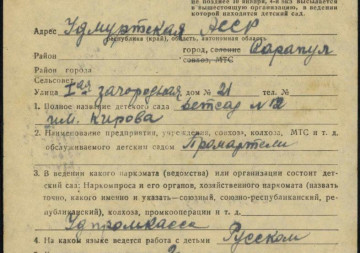 не позднее 10 января, 4-й экз. высылается
в вышестоящую организацию, в ведении
которой находится детский сад.
Адрес Удмуртская АССР
республика (край), область, автономная область
Район город, селение Сарапул
совхоз, МТС
Район города
Сельсовет
Улица Iая загородная дом № 21 тел. №
1. Полное название детского сада Детсад № 12
им. Кирова
2. Наименование предприятия, учреждения, совхоз, колхоза, МТС и т. д.
обслуживаемого детским садом Промартели
3. В ведении какого наркомата (ведомства) или организации состоит дет-
ский сад: Наркомпроса и его органов, хозяйственного наркомата (назвать
точно, какого именно и указать—союзный, союзно-республиканский, рес-
публиканский), колхоза, промкооперации и т. д.
Удпромкасса
4. На каком языке ведется работа с детьми Русском